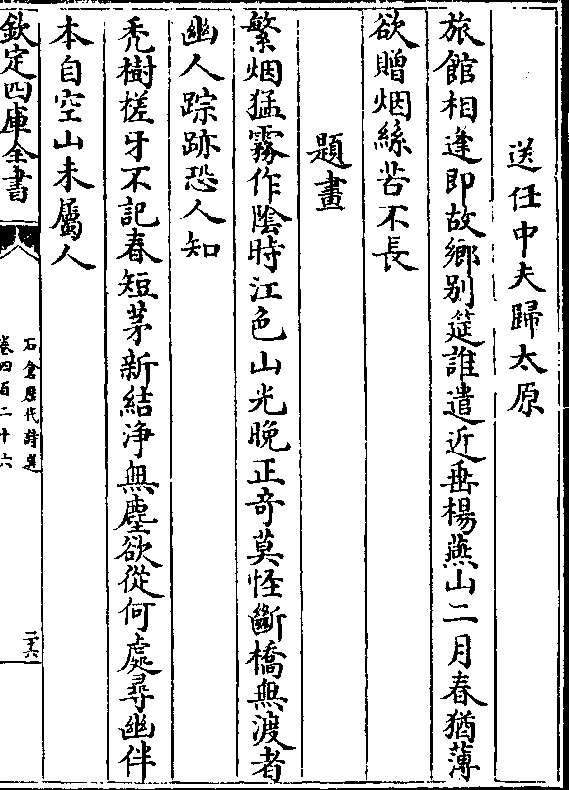 送任中夫歸太原
旅館相逢即故鄉别筵誰遣近垂楊燕山二月春猶薄
欲贈烟絲苦不長
題畫
繁烟猛霧作陰時江色山光晚正竒莫怪斷橋無渡者
幽人踪跡恐人知
禿樹槎牙不記春短茅新結浄無塵欲從何處尋幽伴
本自空山未屬人
欽定四庫全書
石倉歴代詩選
卷四百二十六
二十六